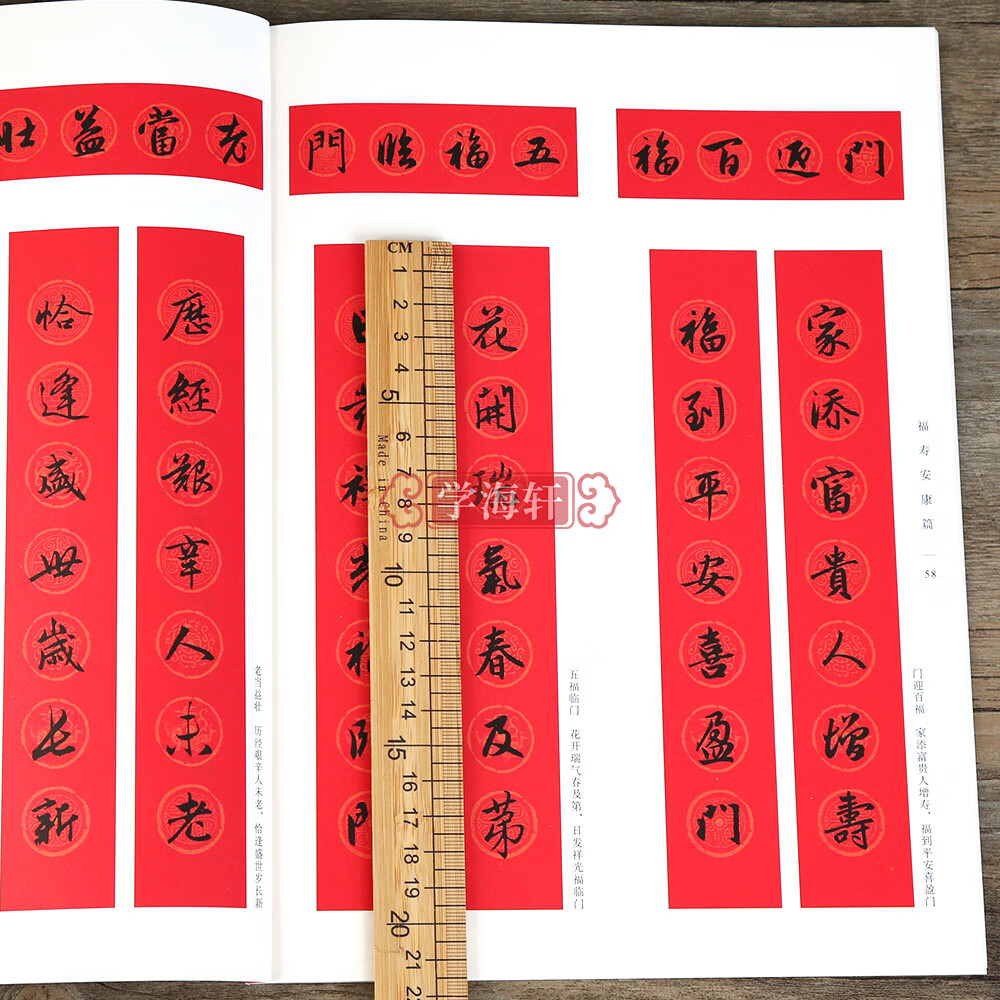 门迎百福
家添富貴人增壽
福到平安喜盈门
福寿安康篇
58
门迎百福 家添富贵人增寿，福到平安喜盈门
五福臨門
花開瑞氣春及第
五福临门 花开瑞气春及第，日发祥光福临门
老當益壯
歷經艱辛人未老
恰逢盛世歲長新
老当益壮 历经艰辛人未老，恰逢盛世岁长新
CM
1
2
3
4
5
6
7
8
9
10
11
12
13
14
15
16
17
18
19
20
21
22
Made in China
学海轩